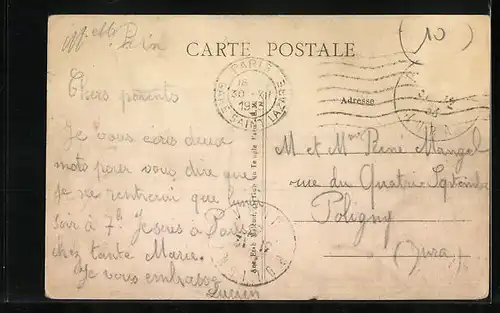 (10)
CARTE POSTALE
PARIS
18
30 - XII
19
GARE SAINT LAZARE
Adresse
Chers parents
Je vous écris deux
mots pour vous dire que
je ne rentrerai que lundi
soir à 7h Je suis à Paris
chez tante Marie.
Je vous embrasse
Lucien
M et Mme René Mangel
rue du Quatre Septembre
Poligny
(Jura)